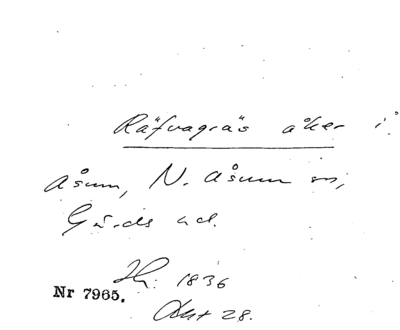 Räfvagräs åker i
Åsum, N. Åsum sn,
Gärds hd.
1836
Nr 7965.
Akt 28.